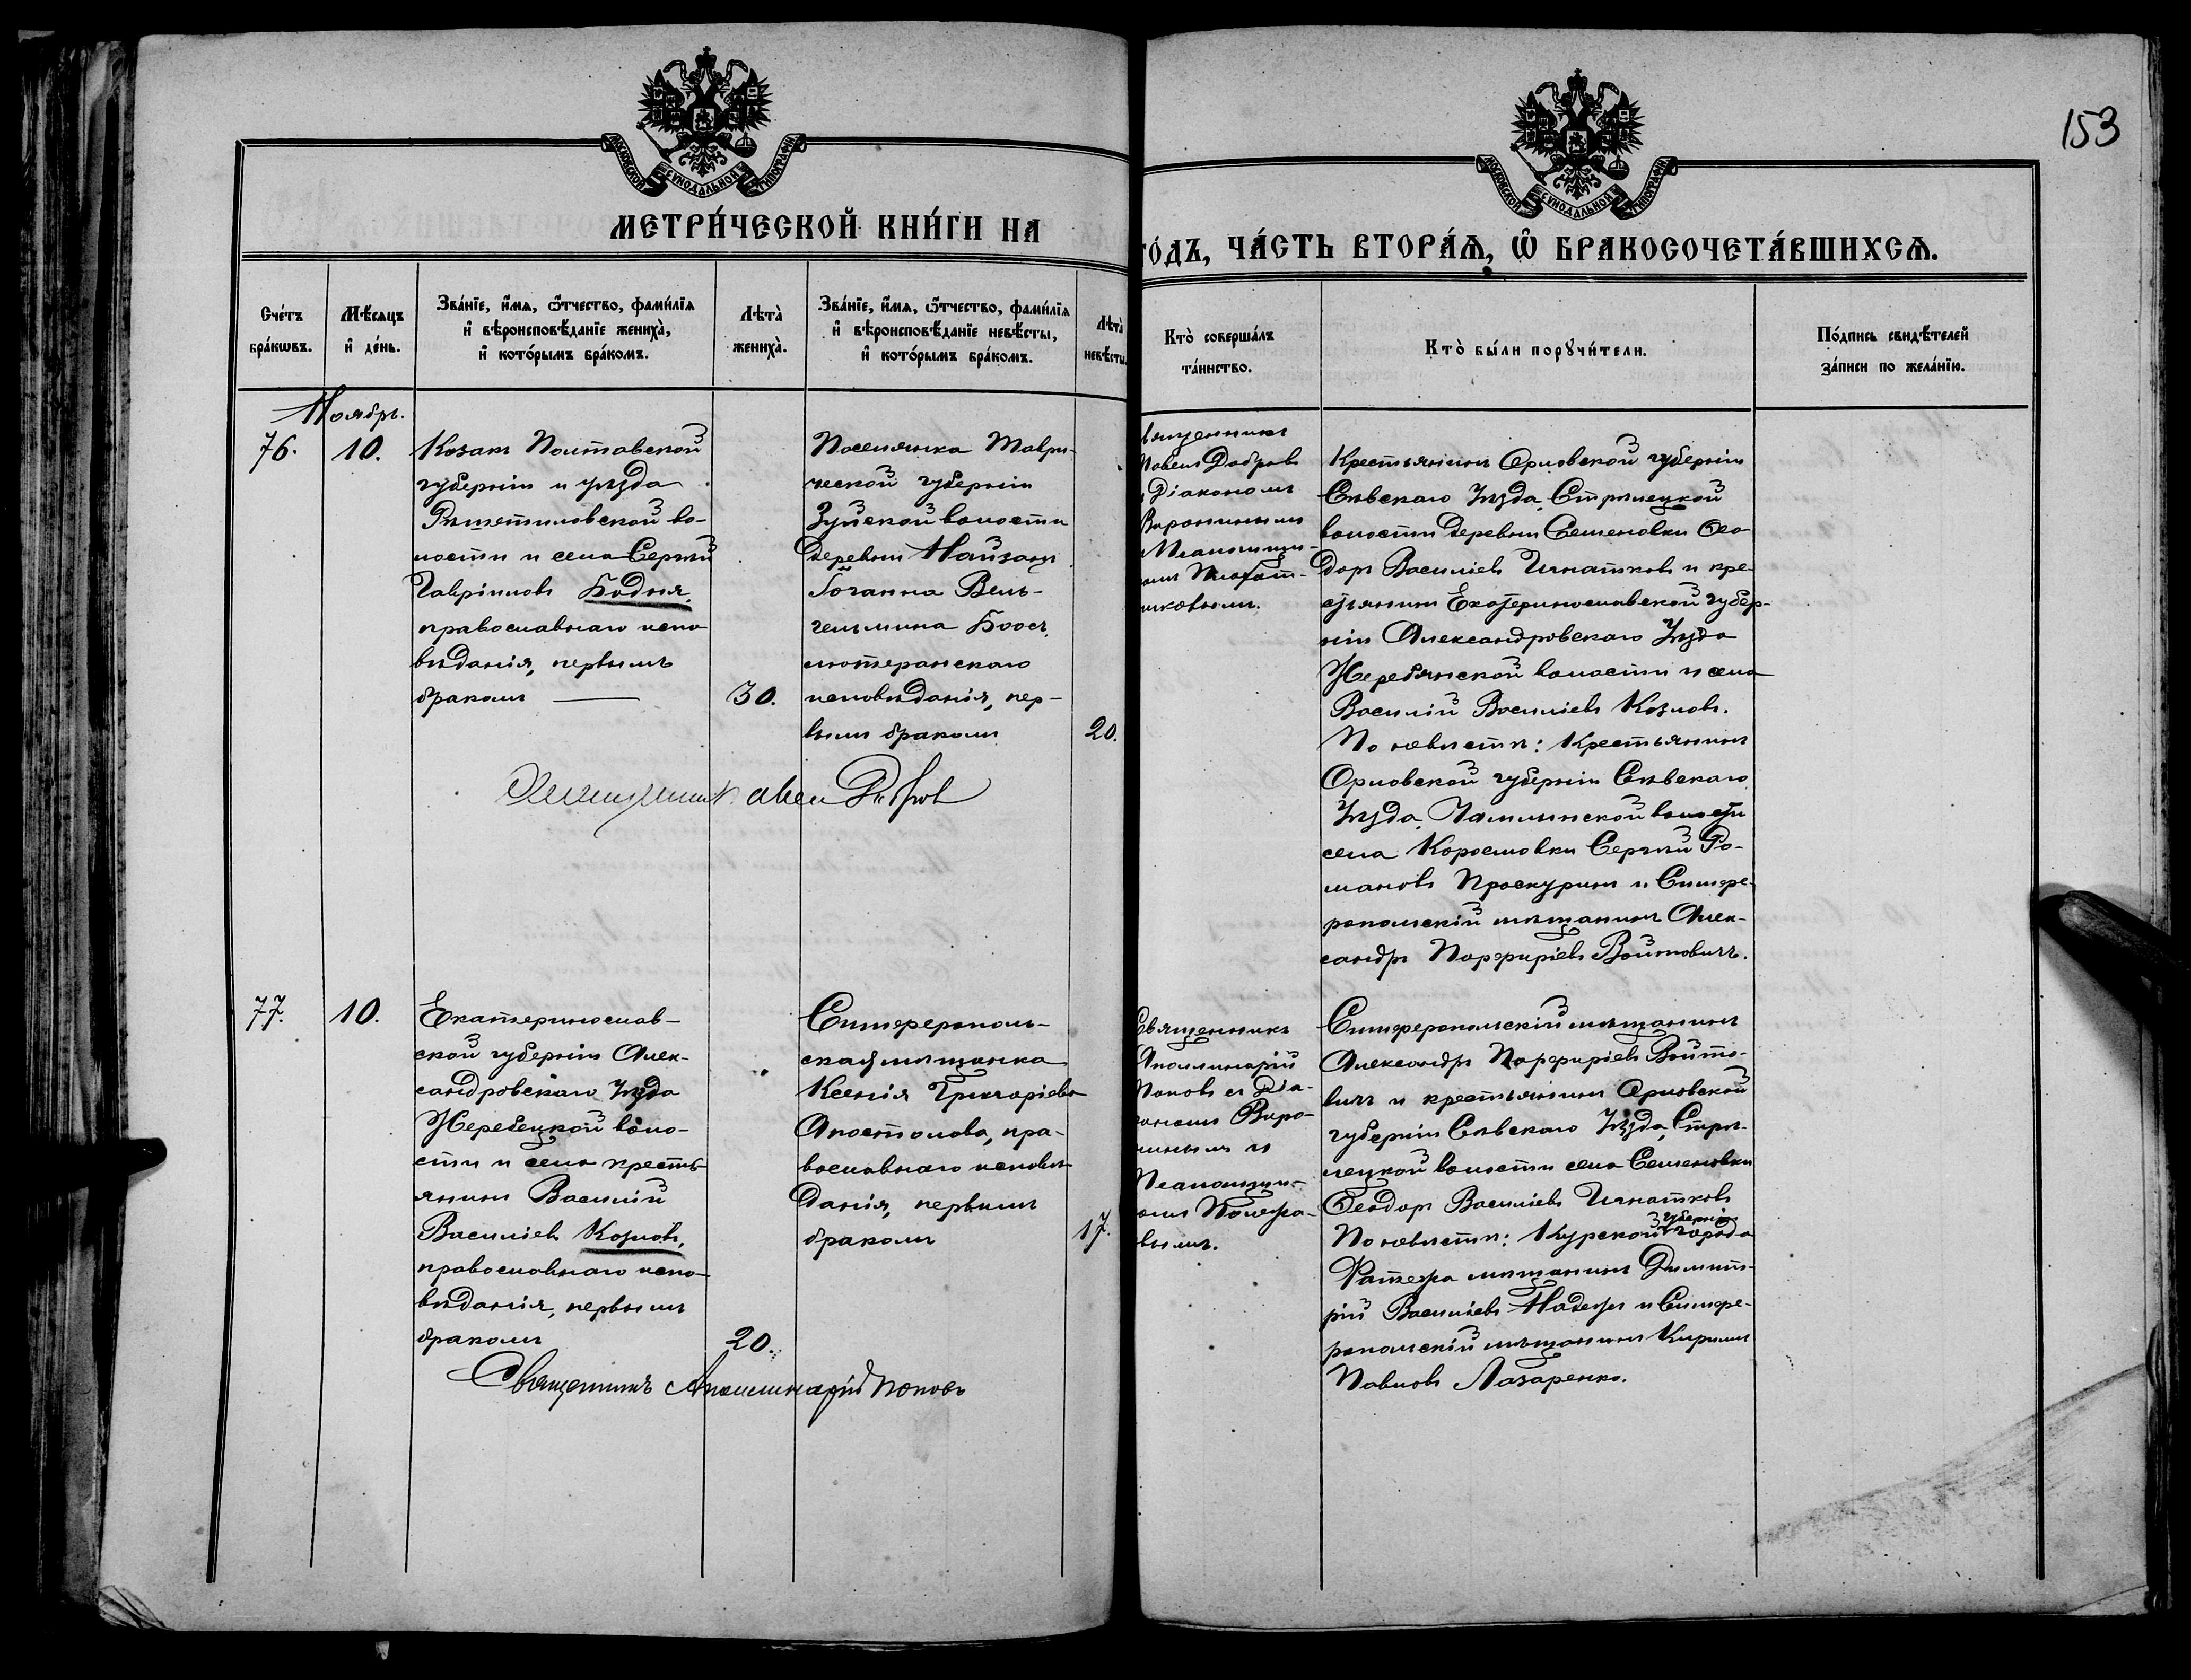 153
МОСКОВСКОЙ СѴНОДАЛЬНОЙ ТИПОГРАФІИ
МОСКОВСКОЙ СѴНОДАЛЬНОЙ ТИПОГРАФІИ
МЕТРИ́ЧЕСКОЙ КНИ́ГИ НА
ГО́ДЪ, ЧА́СТЬ ВТОРА́Ѧ, Ѽ БРАКОСОЧЕТА́ВШИХСѦ.
Сче́тъ бра́кѡвъ.
Мѣ́сяцъ и҆ де́нь.
Зва́нїе, и҆́мѧ, ѻ҆́тчество, фами́лїѧ
и҆ вѣроисповѣ́данїе жениха̀,
и҆ кото́рымъ бра́комъ.
Лѣта̀ жениха̀.
Зва́нїе, и҆́мѧ, ѻ҆́тчество, фами́лїѧ
и҆ вѣроисповѣ́данїе невѣ́сты,
и҆ кото́рымъ бра́комъ.
Лѣта̀ невѣ́сты.
Кто̀ соверша́лъ
та́инство.
Кто̀ бы́ли порꙋчи́тели.
По́дпись свидѣ́телей
за́писи по жела́нїю.
Ноябрь.
76.
10.
Козакъ Полтавской
губерніи и уѣзда
Рѣшетиловской во-
лости и села Сергѣй
Гавріиловъ Бодня,
православнаго испо-
вѣданія, первымъ
бракомъ
30.
Поселянка Таври-
ческой губерніи
Зуйской волости
деревни
Іоганна Виль-
гельмина Боосъ,
лютеранскаго
исповѣданія, пер-
вымъ бракомъ
20.
Священникъ
Павелъ Добровъ
Діакономъ
Псаломщи-
Крестьянинъ Орловской губерніи
Сѣвскаго Уѣзда, Стрѣлецкой
волости деревни Семеновки Ѳео-
доръ Васильевъ Игнатковъ и кре-
стьянинъ Екатеринославской губер-
ніи Александровскаго Уѣзда
Жеребянской волости и села
Василій Васильевъ Козловъ.
По невѣстѣ: Крестьянинъ
Орловской губерніи Сѣвскаго
Уѣзда, волости
села Сергѣй Ро-
мановъ Проскуринъ и Симфе-
ропольскій мѣщанинъ Алек-
сандръ Порфиріевъ Войтовичъ.
Священникъ Павелъ Добровъ
77.
10.
Екатеринослав-
ской губерніи Алек-
сандровскаго Уѣзда
Жеребецкой воло-
сти и села кресть-
янинъ Василій
Васильевъ Козловъ,
православнаго испо-
вѣданія, первымъ
бракомъ
20.
Симферополь-
ская мѣщанка
Ксенія Григоріева
Апостолова, пра-
вославнаго исповѣ-
данія, первымъ
бракомъ
17.
Священникъ
Аполлинарій
Поповъ съ Діа-
кономъ Виро-
и
Псаломщи-
Симферопольскій мѣщанинъ
Александръ Порфиріевъ Войто-
вичъ и крестьянинъ Орловской
губерніи Сѣвскаго Уѣзда, Стрѣ-
лецкой волости села Семеновки
Ѳеодоръ Васильевъ Игнатковъ
По невѣстѣ: Курской губерніи города
мѣщанинъ Димит-
рій Васильевъ и Симфе-
ропольскій мѣщанинъ Кириллъ
Павловъ Лазаренко.
Священникъ Аполлинарій Поповъ